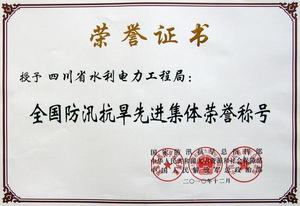 荣誉证书
授予 四川省水利电力工程局：
全国防汛抗旱先进集体荣誉称号
国家防汛抗旱总指挥部
中华人民共和国人力资源和社会保障部
中国人民解放军总政治部
二〇一〇年十二月